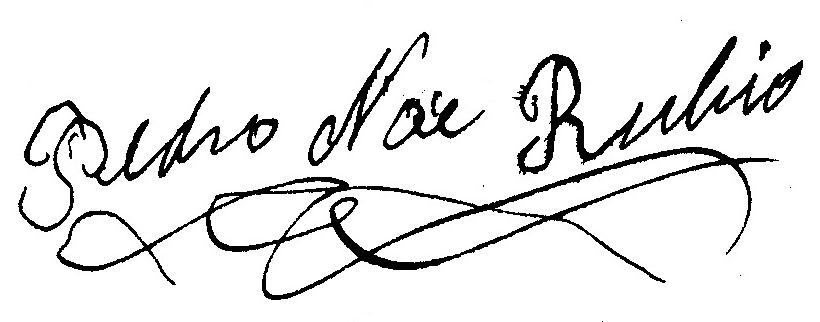 Pedro Noe Rubio